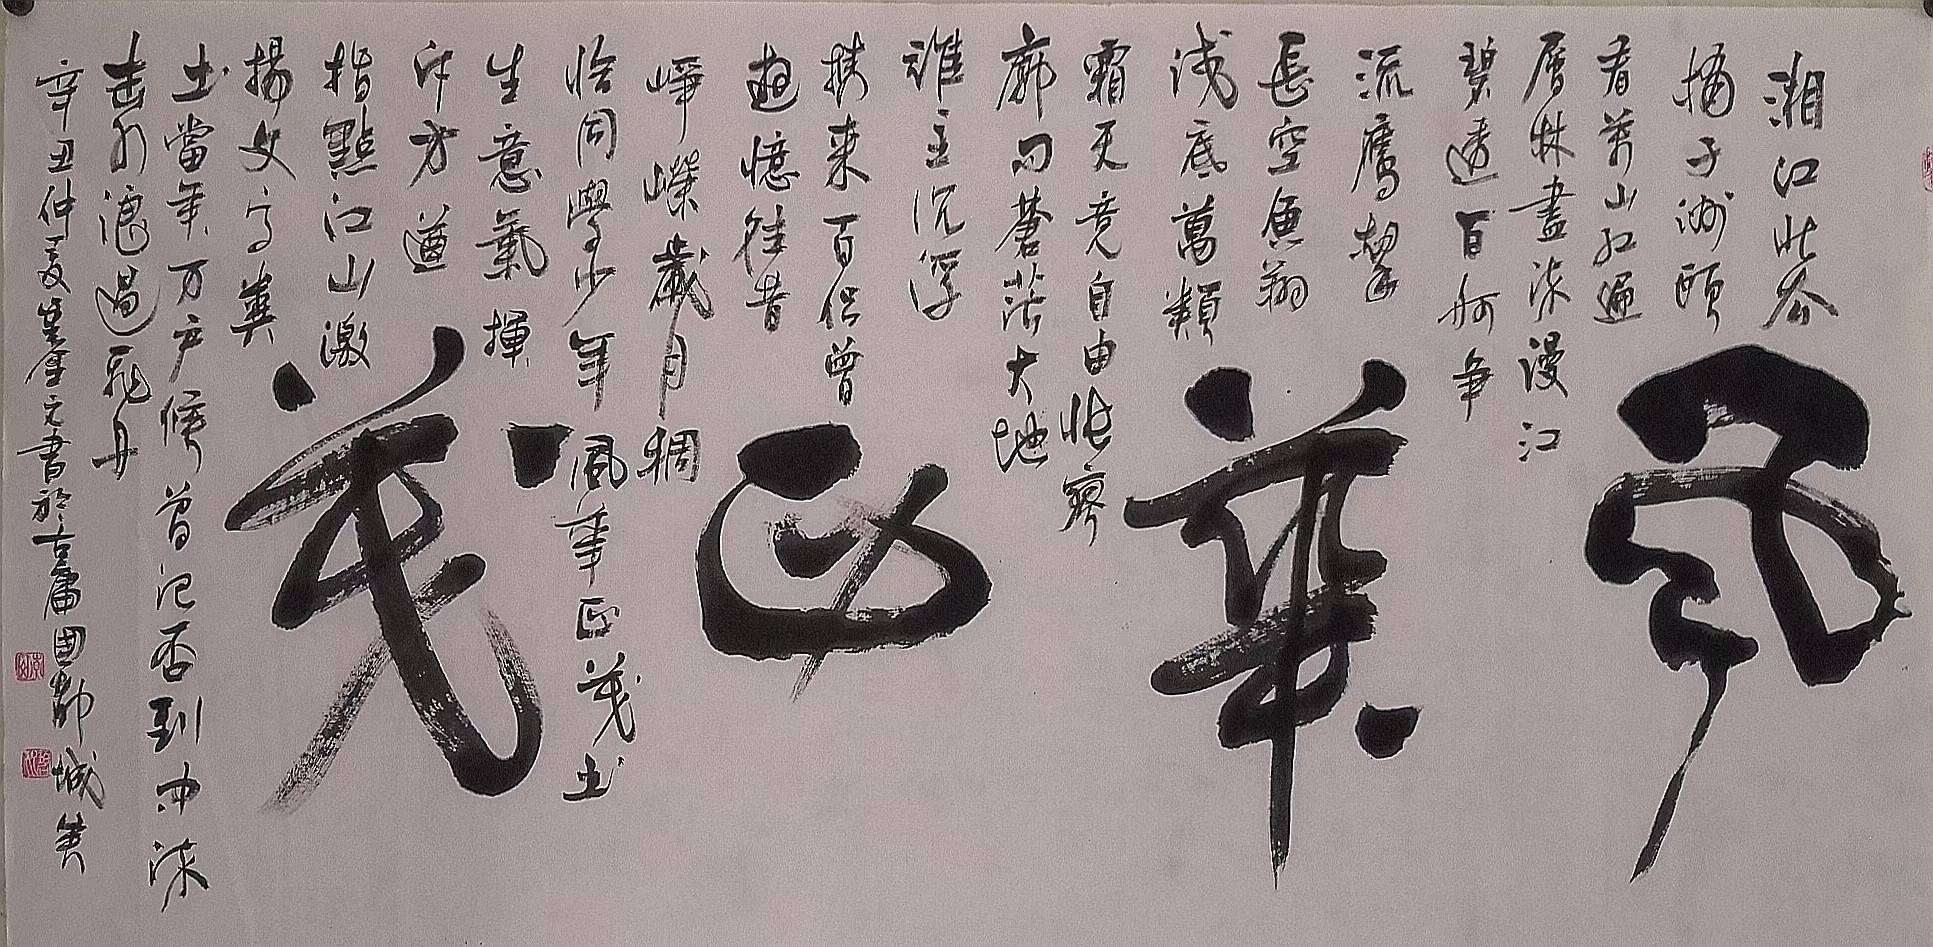 風華正茂
湘江北去
橘子洲頭
看萬山红遍
層林盡染漫江
碧透百舸争
流鹰擊
長空魚翔
浅底萬類
霜天竞自由悵寥
廓问蒼茫大地
谁主沉浮
携来百侣曾
遊憶往昔
崢嶸歲月稠
恰同學少年風華正茂书
生意氣揮
斥方遒
指點江山激
揚文字糞
土當年万户侯曾记否到中流
击水浪遏飛舟
辛丑仲夏金文書於古庸國都城